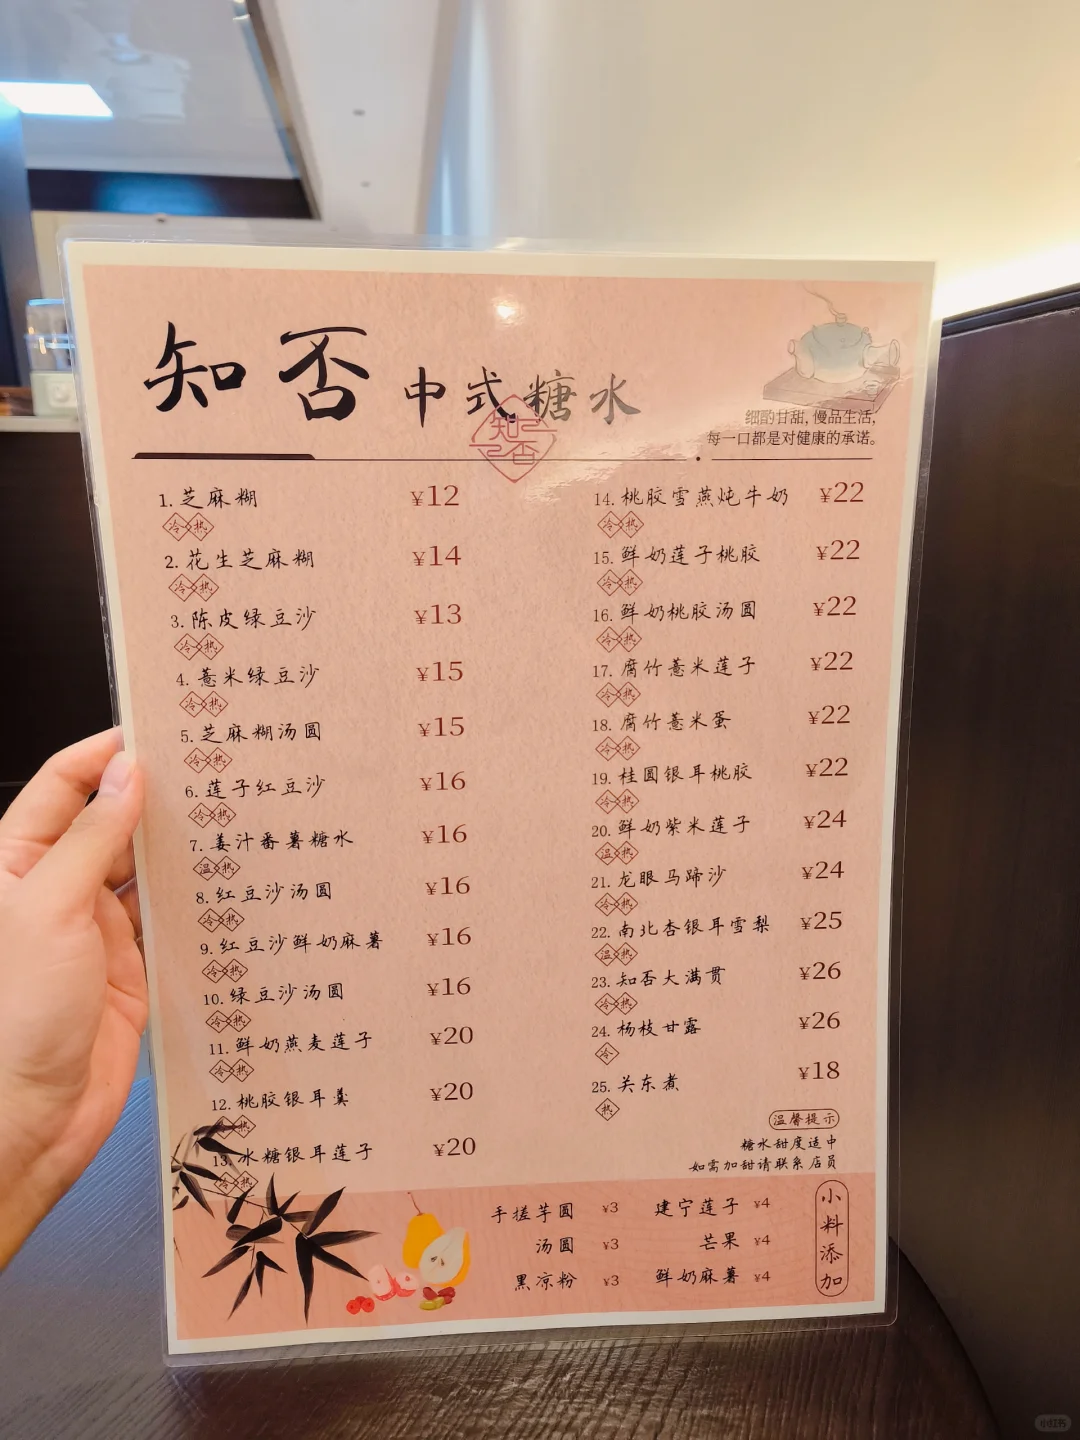 知否 中式糖水
知否
细酌甘甜，慢品生活，
每一口都是对健康的承诺。
1. 芝麻糊 ¥12
冷 热
2. 花生芝麻糊 ¥14
冷 热
3. 陈皮绿豆沙 ¥13
冷 热
4. 薏米绿豆沙 ¥15
冷 热
5. 芝麻糊汤圆 ¥15
冷 热
6. 莲子红豆沙 ¥16
冷 热
7. 姜汁番薯糖水 ¥16
温 热
8. 红豆沙汤圆 ¥16
冷 热
9. 红豆沙鲜奶麻薯 ¥16
冷 热
10. 绿豆沙汤圆 ¥16
冷 热
11. 鲜奶燕麦莲子 ¥20
冷 热
12. 桃胶银耳羹 ¥20
冷 热
13. 冰糖银耳莲子 ¥20
冷 热
14. 桃胶雪燕炖牛奶 ¥22
冷 热
15. 鲜奶莲子桃胶 ¥22
冷 热
16. 鲜奶桃胶汤圆 ¥22
冷 热
17. 腐竹薏米莲子 ¥22
冷 热
18. 腐竹薏米蛋 ¥22
冷 热
19. 桂圆银耳桃胶 ¥22
冷 热
20. 鲜奶紫米莲子 ¥24
温 热
21. 龙眼马蹄沙 ¥24
冷 热
22. 南北杏银耳雪梨 ¥25
温 热
23. 知否大满贯 ¥26
冷 热
24. 杨枝甘露 ¥26
冷
25. 关东煮 ¥18
热
温馨提示
糖水甜度适中
如需加甜请联系店员
小料添加
手搓芋圆 ¥3 建宁莲子 ¥4
汤圆 ¥3 芒果 ¥4
黑凉粉 ¥3 鲜奶麻薯 ¥4
小红书